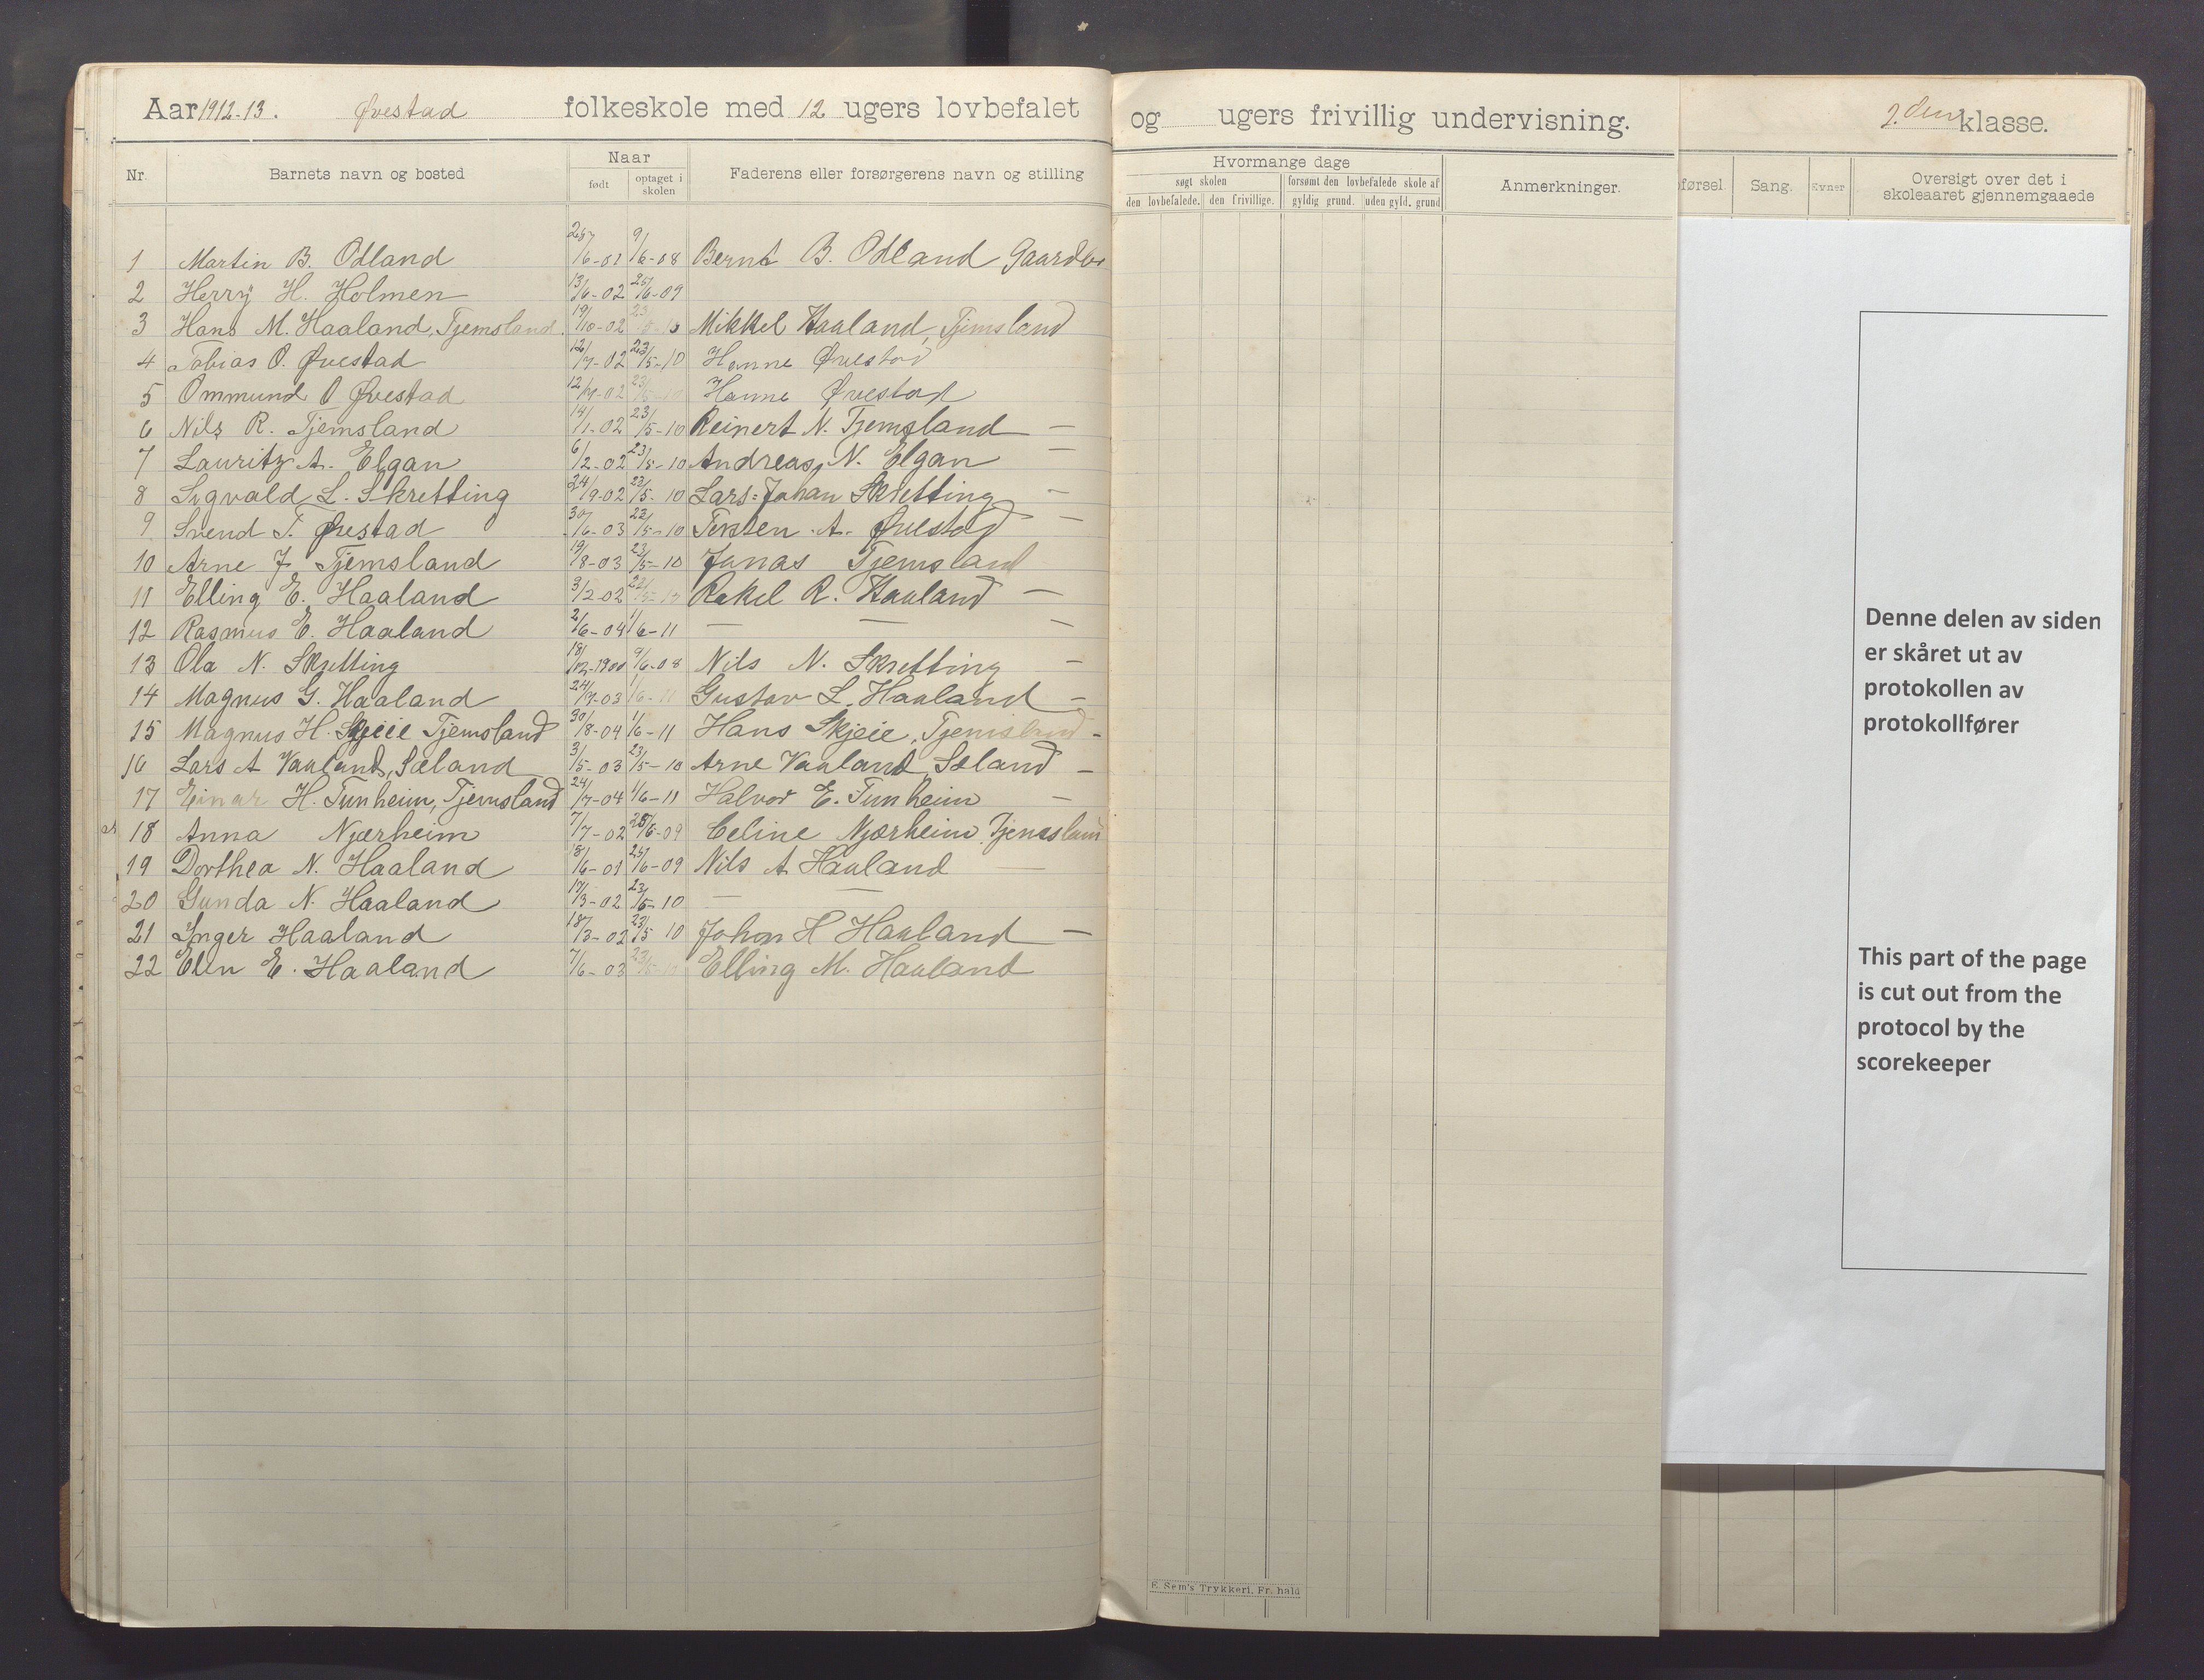 Aar 1912-13. Øvestad folkeskole med 12 ugers lovbefalet og ugers frivillig undervisning. 2. den klasse.
Nr. Barnets navn og bosted Naar født optaget i skolen Faderens eller forsørgerens navn og stilling
Hvormange dage
søgt skolen forsømt den lovbefalede skole af
den lovbefalede. den frivillige. gyldig grund. uden gyld. grund
Anmerkninger.
førsel. Sang. Evner Oversigt over det i skoleaaret gjennemgaaede
1 Martin B. Odland 26/6-01 9/6-08 Bernt B. Odland Gaardbr
2 Herrÿ H. Holmen 13/6-02 25/6-09
3 Hans M. Haaland, Tjemsland 19/10-02 23/5-10 Mikkel Haaland, Tjemsland
4 Tobias O. Øvestad 12/7-02 23/5-10 Hanne Øvestad
5 Ommund O Øvestad 12/7-02 23/5-10 Hanne Øvestad
6 Nils R. Tjemsland 14/1-02 23/5-10 Reinert N. Tjemsland —
7 Lauritz A. Elgan 6/2-02 23/5-10 Andreas N. Elgan —
8 Sigvald L. Skretting 24/9-02 23/5-10 Lars Johan Skretting —
9 Svend T. Øvestad 30/6-03 23/5-10 Torsten A. Øvestad —
10 Arne J. Tjemsland 19/8-03 23/5-10 Jonas Tjemsland
11 Elling E. Haaland 3/2-02 23/5-10 Rakel R. Haaland —
12 Rasmus E. Haaland 2/6-04 1/6-11 — — —
13 Ola N. Skretting 18/12-1900 9/6-08 Nils N. Skretting —
14 Magnus G. Haaland 24/9-03 1/6-11 Gustav L. Haaland —
15 Magnus H. Skjeie Tjemsland 30/8-04 1/6-11 Hans Skjeie, Tjemsland -
16 Lars A Vaaland, Sæland 3/5-03 23/5-10 Arne Vaaland, Sæland —
17 Einar H. Tunheim, Tjemsland 24/7-04 1/6-11 Halvor E. Tunheim —
18 Anna Njærheim 7/7-02 25/6-09 Celine Njærheim Tjemsland
19 Dorthea N. Haaland 18/6-01 25/6-09 Nils A Haaland —
20 Gunda N. Haaland 17/3-02 23/5-10 — —
21 Inger Haaland 18/3-02 23/5 10 Johan H Haaland —
22 Elen E. Haaland 7/6-03 23/5-10 Elling M. Haaland
E. Sem's Trykkeri, Fr. hald
Denne delen av siden
er skåret ut av
protokollen av
protokollfører
This part of the page
is cut out from the
protocol by the
scorekeeper